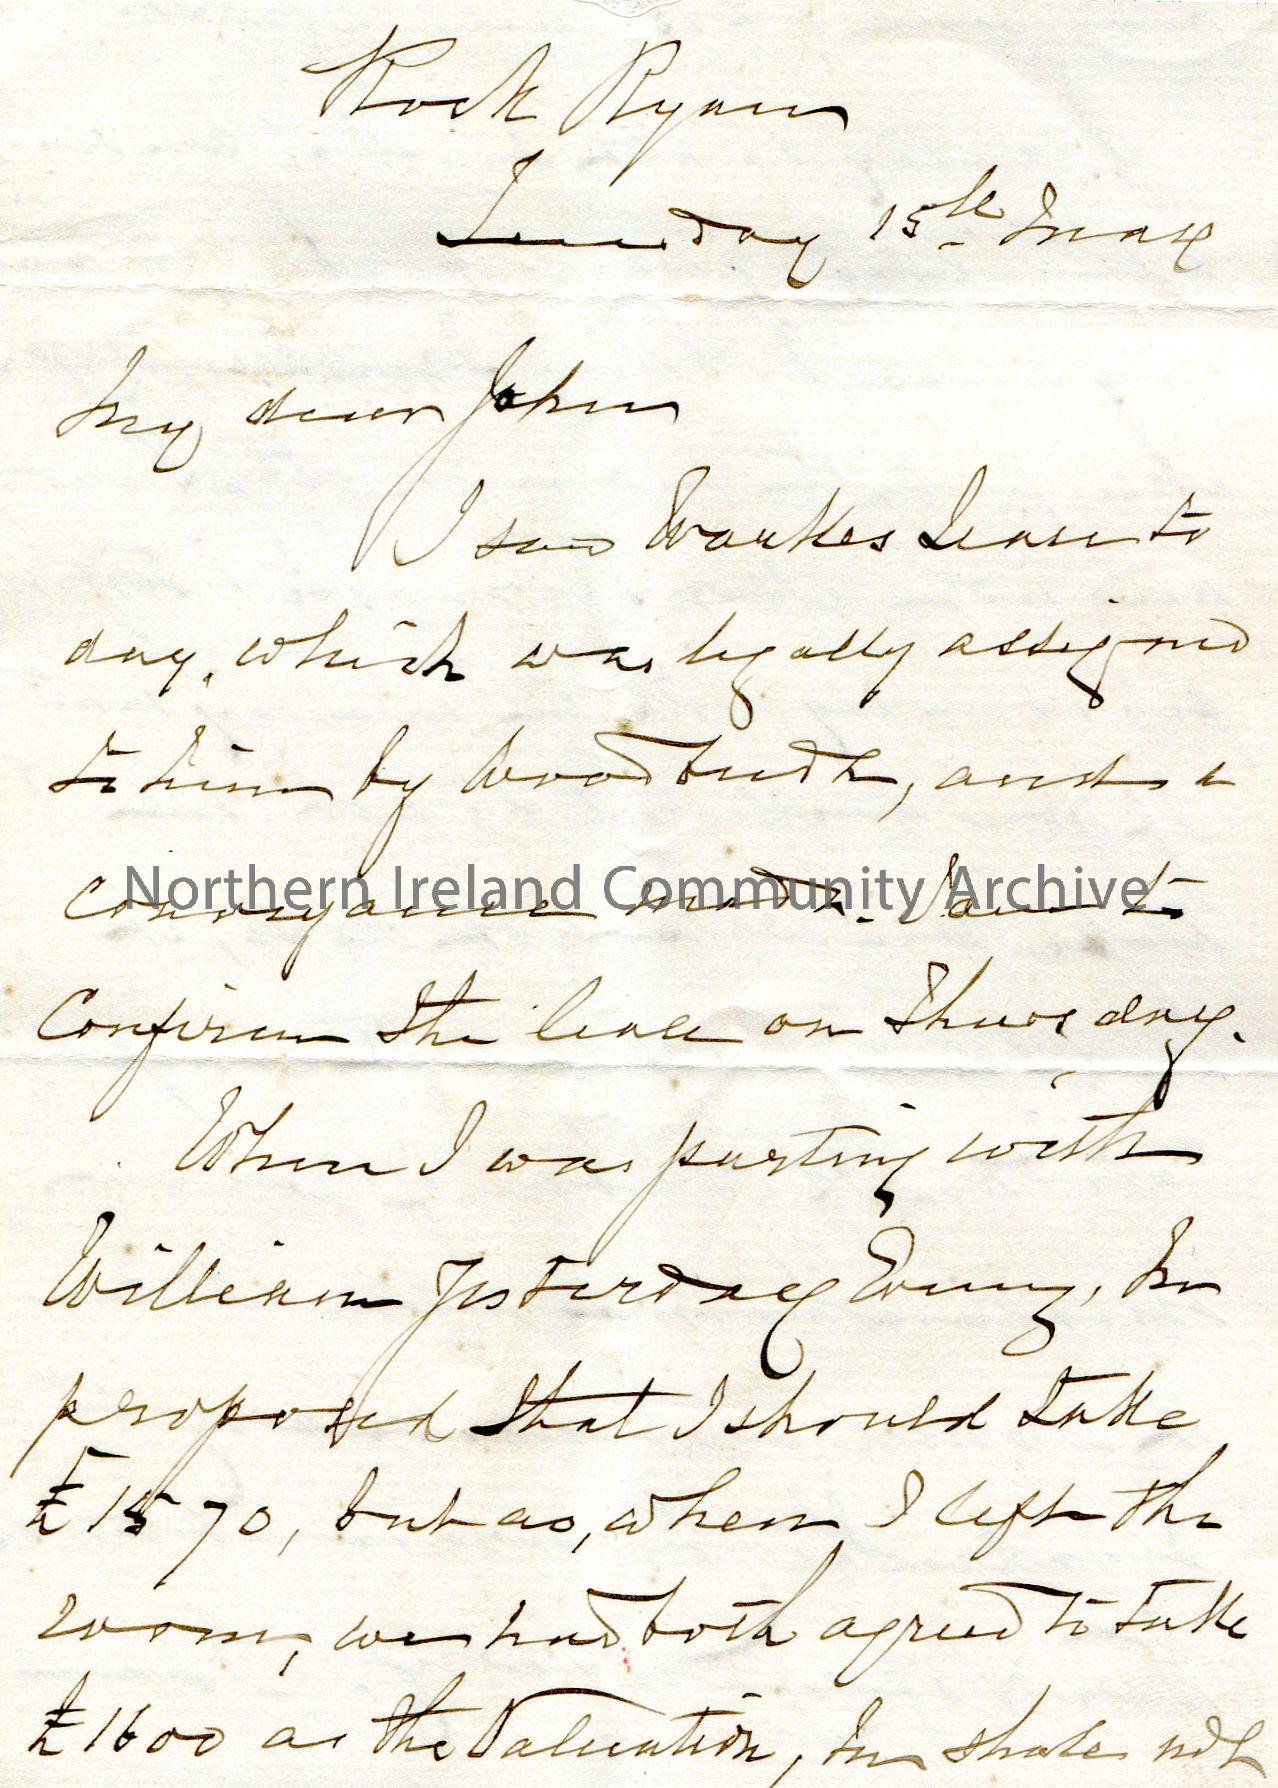 Rock Ryan
Tuesday 15th May
My dear John
I saw Warkes Lease to
day, which was legally assigned
to him by Woodburn, and a
Conveyance made. I am to
Confirm the lease on Thursday.
When I was parting with
William Yesterday Evening, he
proposed that I should take
£1570, but as, when I left the
room, we had both agreed to take
£1600 as the Valuation, he shall not
Northern Ireland Community Archive